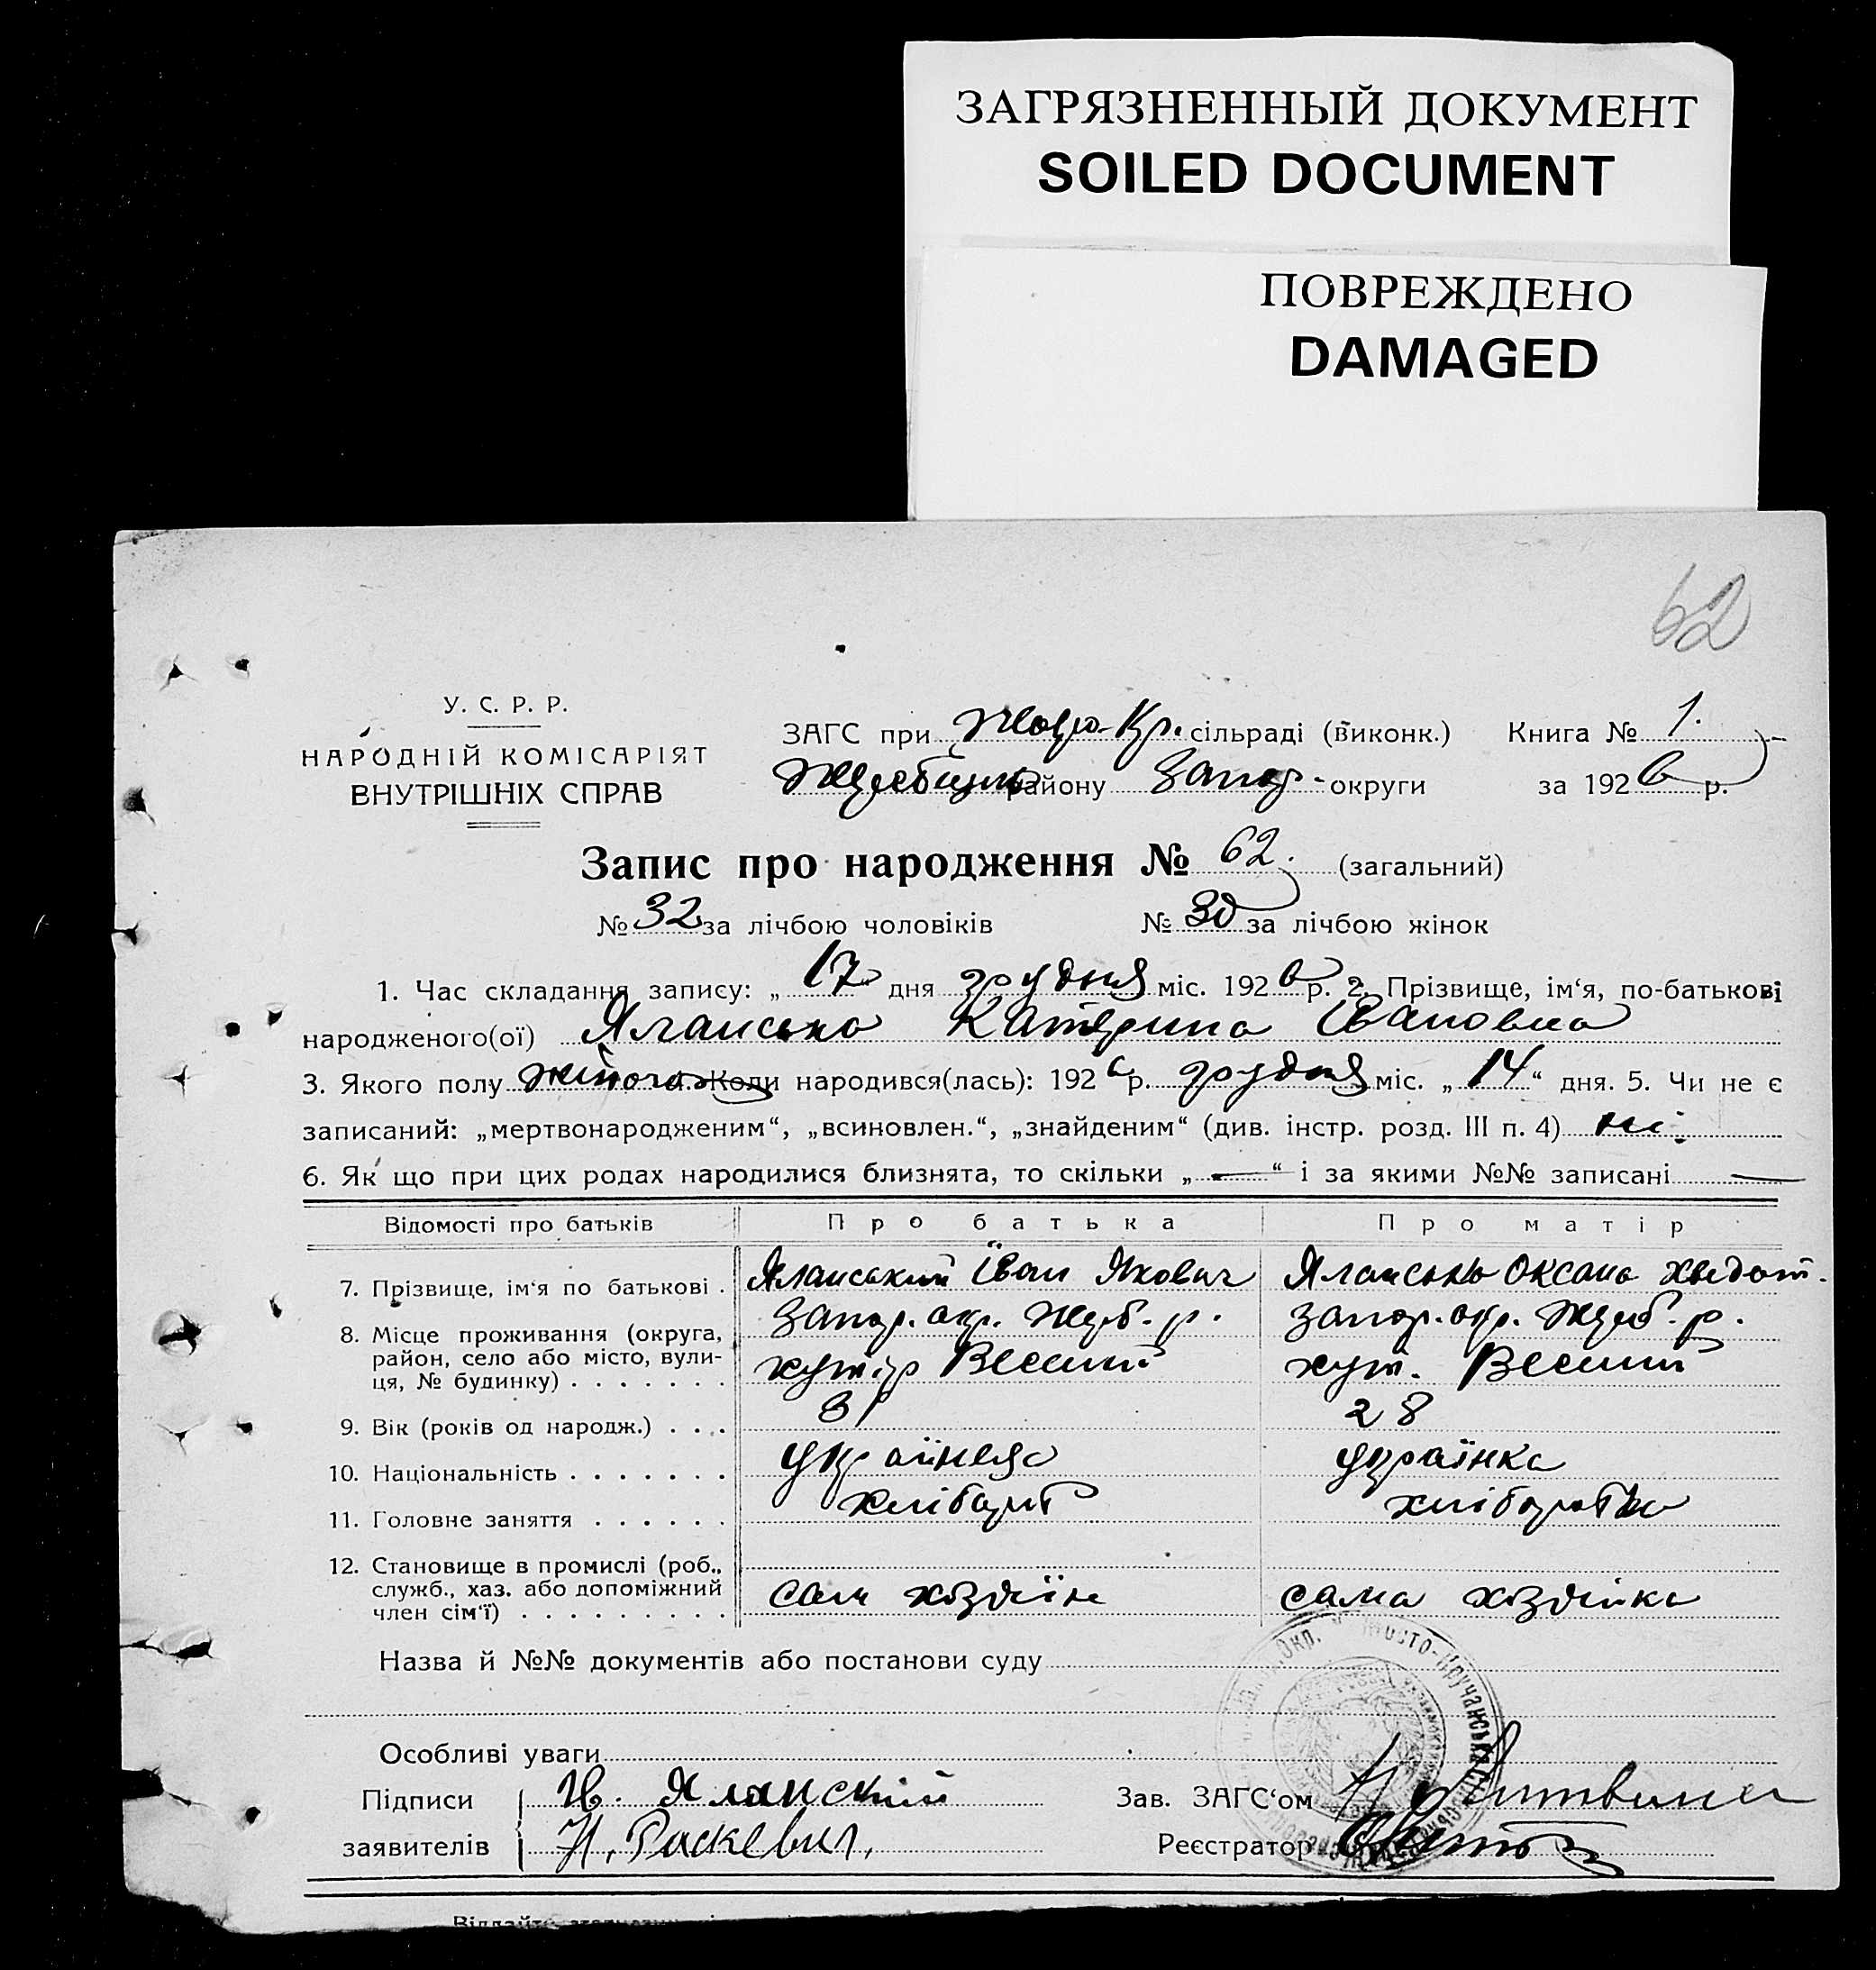 ЗАГРЯЗНЕННЫЙ ДОКУМЕНТ
SOILED DOCUMENT
ПОВРЕЖДЕНО
DAMAGED
62
У. С. Р. Р.
НАРОДНІЙ КОМІСАРІЯТ
ВНУТРІШНІХ СПРАВ
ЗАГС при Жовто-Кр. сільраді (виконк.) Книга № 1.
району Запор. округи за 1926 р.
Запис про народження № 62. (загальний)
№ 32 за лічбою чоловіків № 30 за лічбою жінок
1. Час складання запису: „17“ дня грудня міс. 1926 р. 2. Прізвище, ім‘я, по-батькові
народженого(ої) Яланська Катерина Івановна
3. Якого полу жіночого 4. Коли народився(лась): 1926 р. грудня міс. „14“ дня. 5. Чи не є
записаний: „мертвонародженим“, „всиновлен.“, „знайденим“ (див. інстр. розд. III п. 4) ні.
6. Як що при цих родах народилися близнята, то скільки „—“ і за якими №№ записані —
Відомості про батьків Про батька Про матір
7. Прізвище, ім‘я по батькові . Яланський Іван Якович Яланська Оксана Хведот.
8. Місце проживання (округа, район, село або місто, вулиця, № будинку) . . . . . . . Запор. окр. Жереб. р. Запор. окр. Жереб. р.
хутір Веселий хут. Веселий
9. Вік (років од народж.) . . . . 31 28
10. Національність . . . . . . . українець українка
11. Головне заняття . . . . . . хлібороб хліборобка
12. Становище в промислі (роб., служб., хаз. або допоміжний член сім‘ї) . . . . . . . . . сам хозяїн сама хозяйка
Назва й №№ документів або постанови суду
Особливі уваги
Підписи заявителів Ив. Яланский
Н. Раскевич.
Зав. ЗАГС‘ом Литвин
Реєстратор